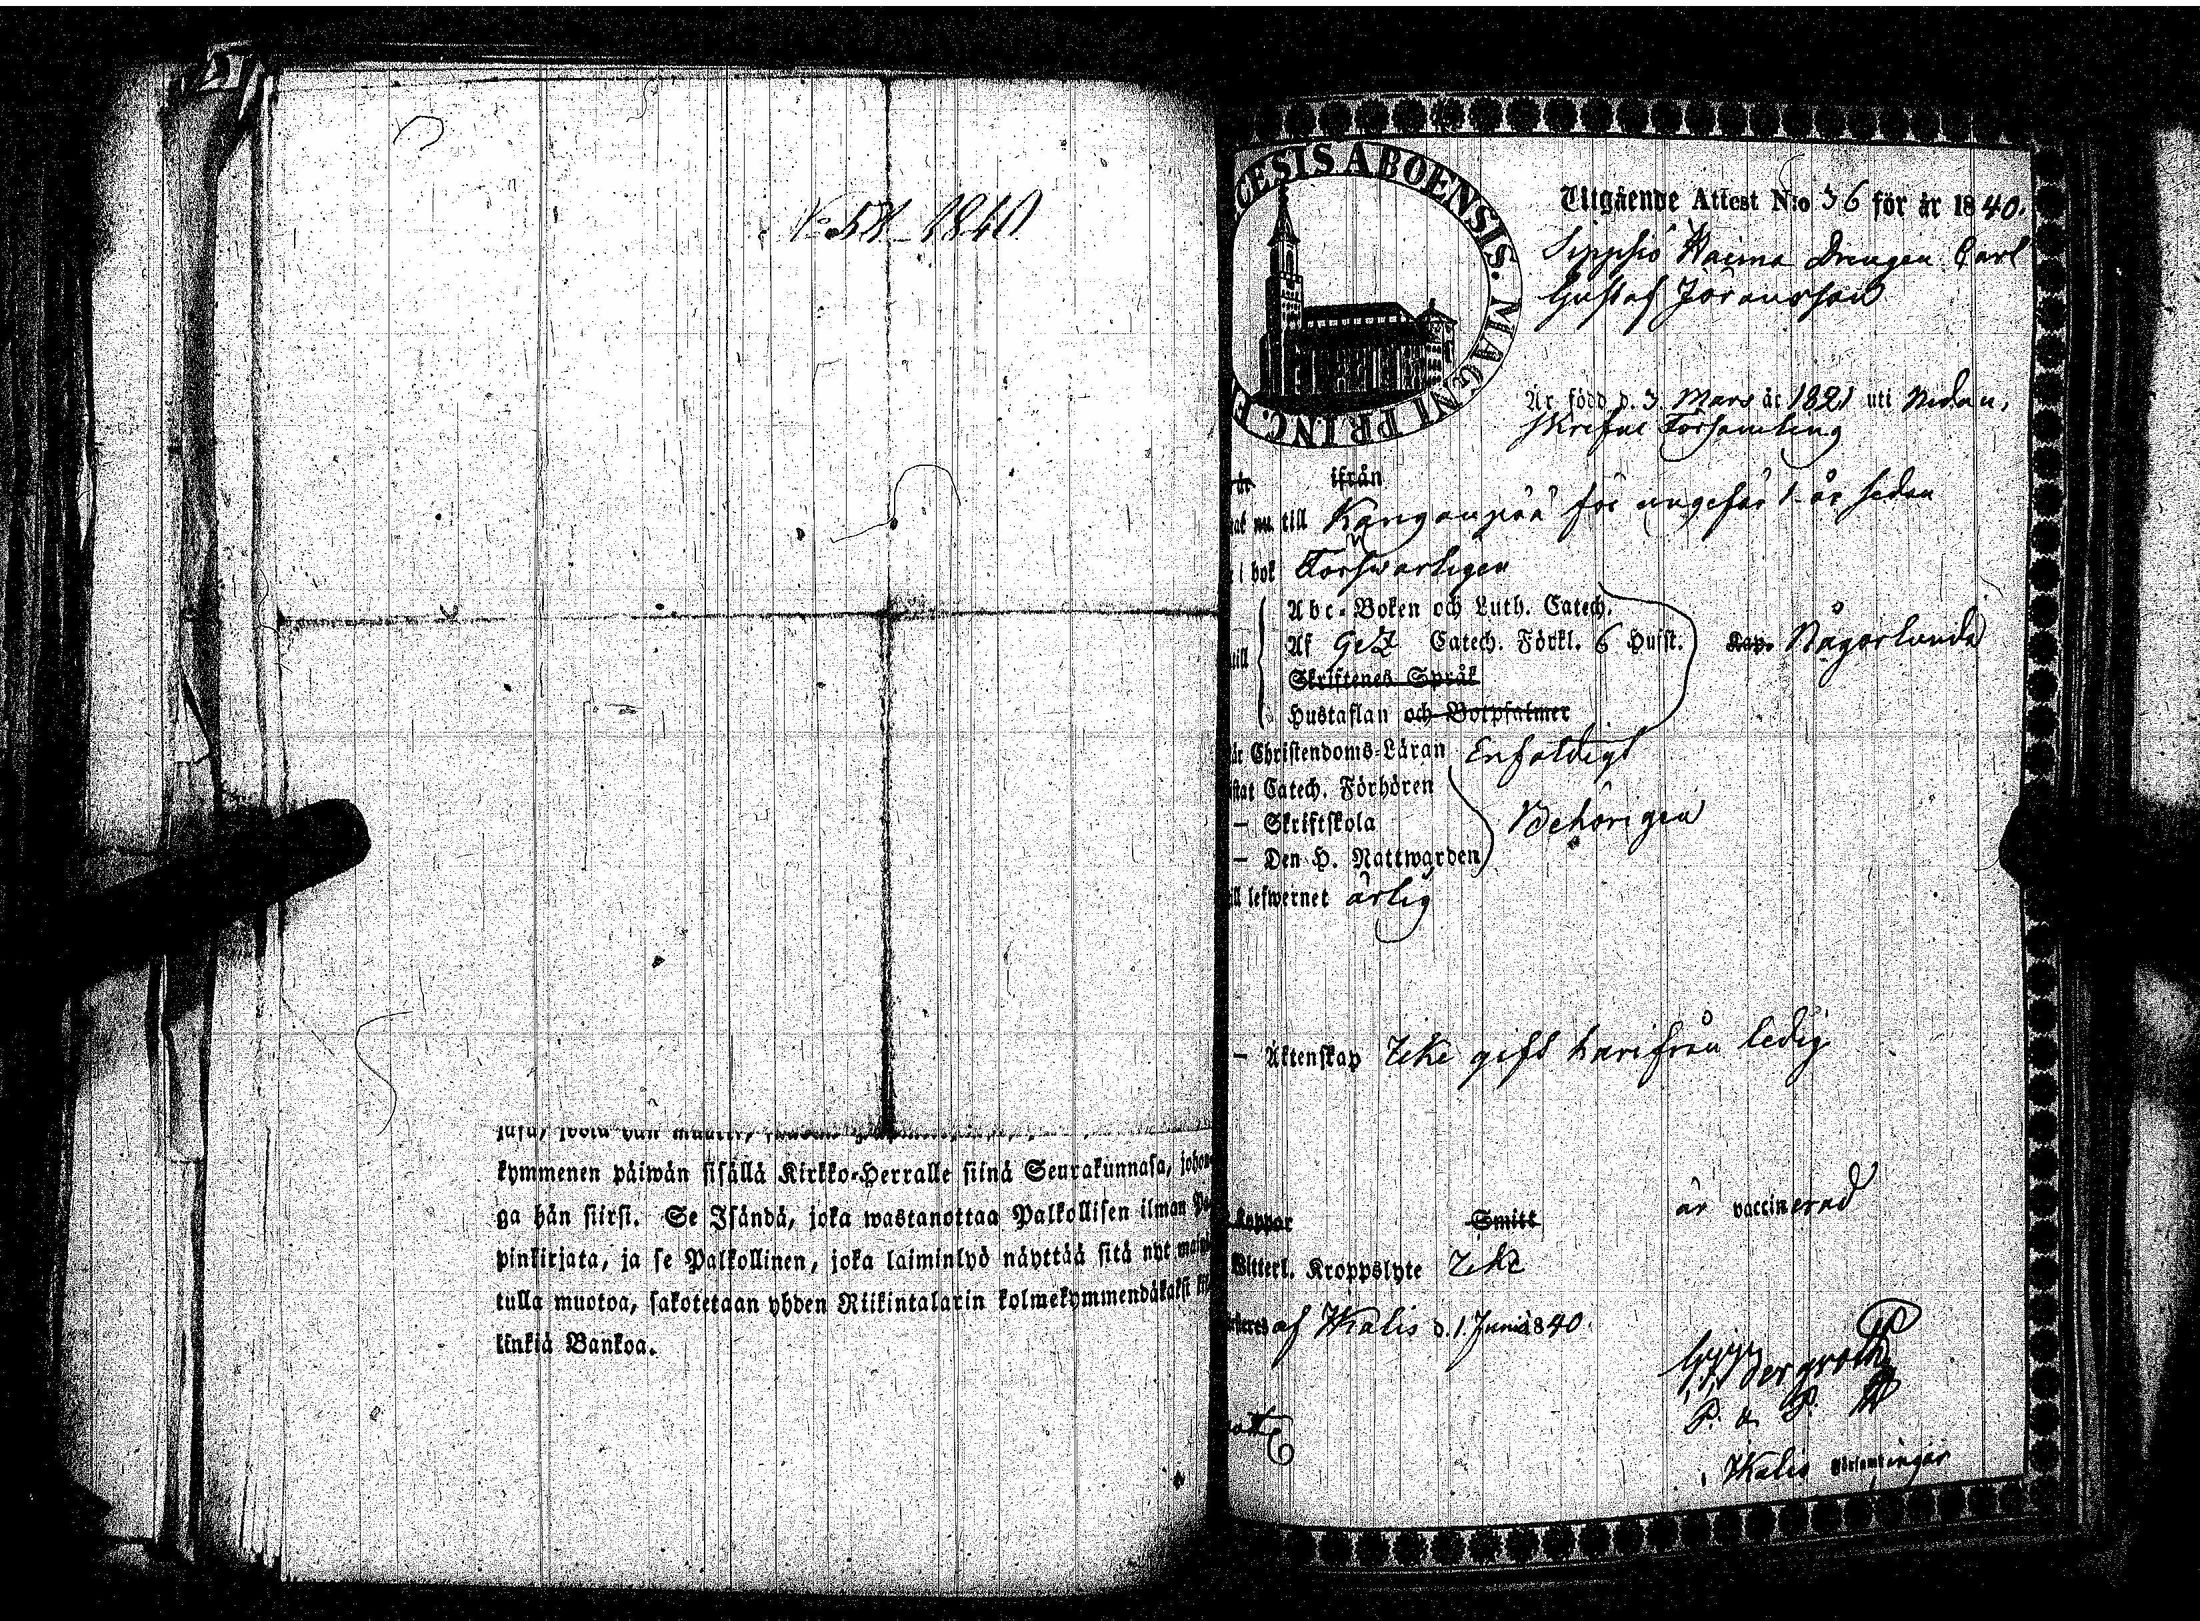 No 51 1840
kymmenen päiwän sisällä Kirkko-Herralle siinä Seurakunnasa, johon-
ga hän siirsi. Se Isändä, joka wastanottaa Palkollisen ilman
pinkirjata, ja se Palkollinen, joka laiminlyö näyttää sitä nyt
tulla muotoa, sakotetaan yhden Riikintalarin kolmekymmendäkaksi
linkiä Bankoa.
CESIS ABOENSIS. MAGNI PRINC. F
Utgående Attest N:o 36 för år 1840.
Drengen Carl
Gustaf Joransson
Är född d. 3 Mars år 1821 uti Nedan,
skrifne Församling
ifrån
nu till Kanganpää för ungefär 1 år sedan
i bok Forswarligen
Abc-Boken och Luth. Catech.
Af Gez Catech. Förkl. 6 Hufst. Kap. Någorlunda
Skriftenes Språk
Hustaflan och Botpsalmer
Christendoms-Läran Enfaldigt
Catech. Förhören
— Skriftskola Behörigen
— Den H. Nattwarden
lefwernet ärlig
— Äktenskap Icke gift härifrån ledig
är vaccinerad
Koppor Smitt
Witterl. Kroppslyte Icke
af Ikalis d. 1 Junii 1840.
Bergroth
P. &
Ikalis Församlingar